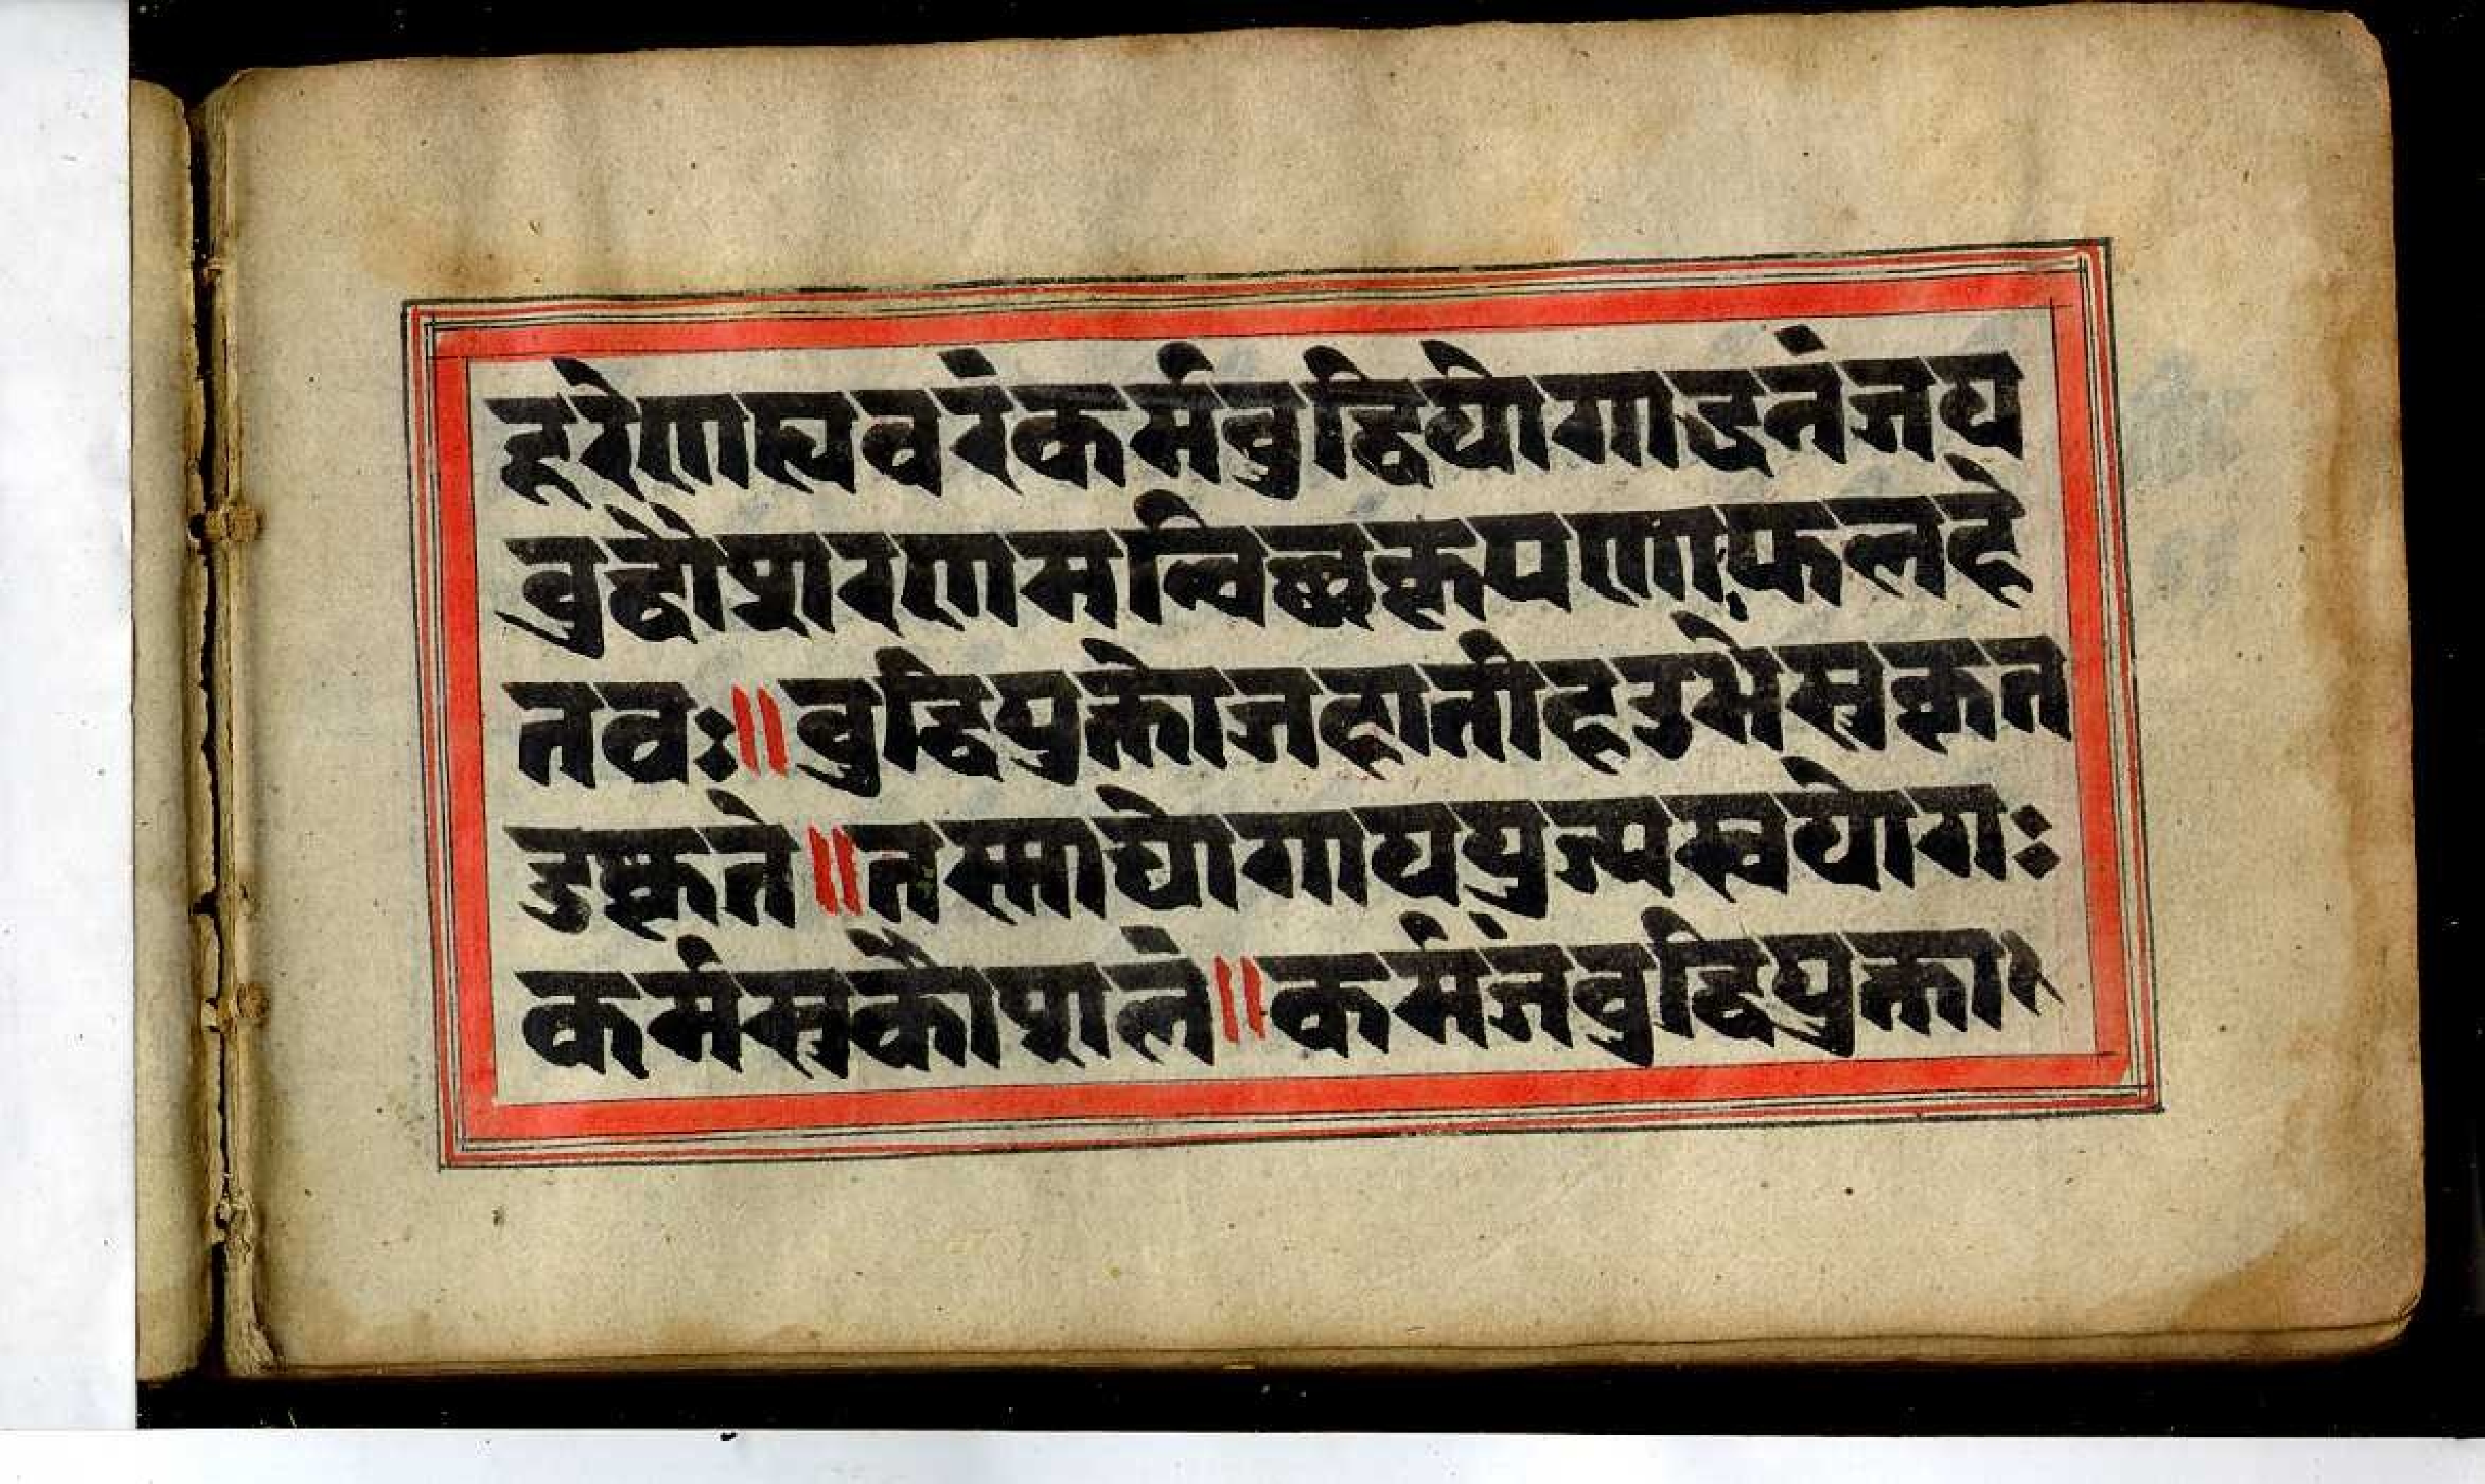 हूरेणह्यवरंकर्मबुद्धियोगाद्धनंजय
बुद्धौशरणमन्विच्छकृपणाःफलहे
तवः॥बुद्धियुक्तोजहातीहउभेसुकृत
दुष्कृते॥तस्माद्योगाययुज्यस्वयोगः
कर्मसुकौशले॥कर्मजंबुद्धियुक्ता